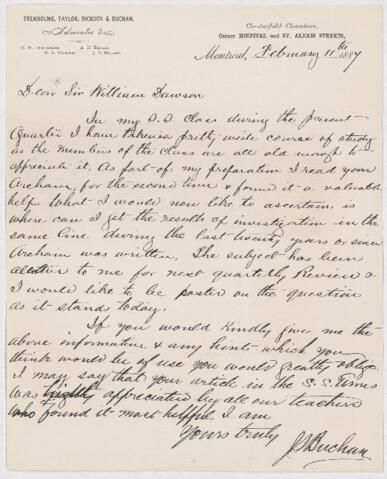 TRENHOLME, TAYLOR, DICKSON & BUCHAN,
Advocates &c
Chesterfield Chambers,
Corner HOSPITAL and ST. ALEXIS STREETS,
Montreal, February 11th 1887
Dear Sir William Dawson
In my S.S. Class during the present
Quarter I have taken a pretty wide course of study
as the members of the class are all old enough to
appreciate it. As part of my preparation I read your
Archaia, for the second time & found it a valuable
help. What I would now like to ascertain is
where can I get the results of investigation in the
same line during the last twenty years or since
Archaia was written. The subject has been
to me for next quarterly Review &
I would like to be posted on the question
as it stands today.
If you would kindly give me the
above information & any hints which you
think would be of use you would greatly oblige.
I may say that your article in the S.S. Times
was highly appreciated by all our teachers
who found it most helpful. I am
Yours truly
J S Buchan